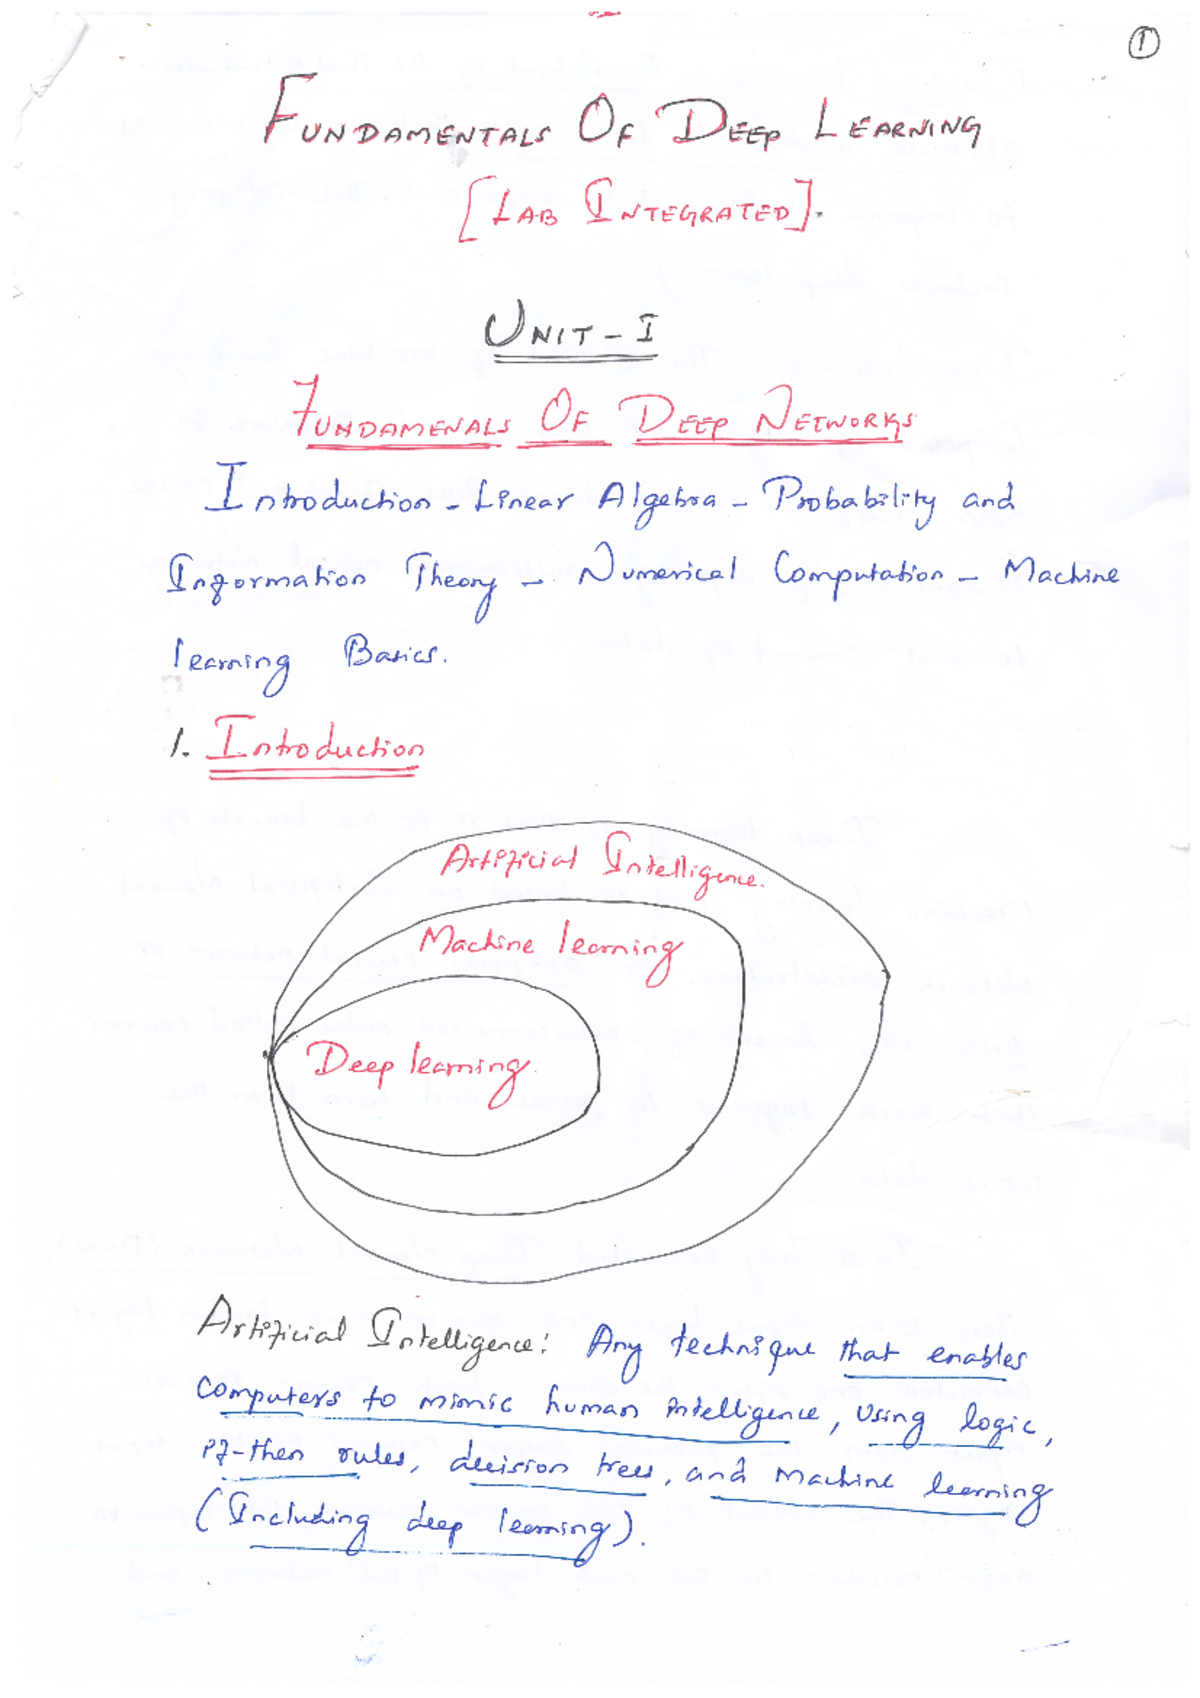 1
FUNDAMENTALS OF DEEP LEARNING
[LAB INTEGRATED].
UNIT - I
FUNDAMENALS OF DEEP NETWORKS
Introduction - Linear Algebra - Probability and
Information Theory - Numerical Computation - Machine
learning Basics.
1. Introduction
Artificial Intelligence.
Machine learning
Deep learning.
Artificial Intelligence: Any technique that enables
computers to mimic human intelligence, using logic,
if-then rules, decision trees, and machine learning
(Including deep learning).